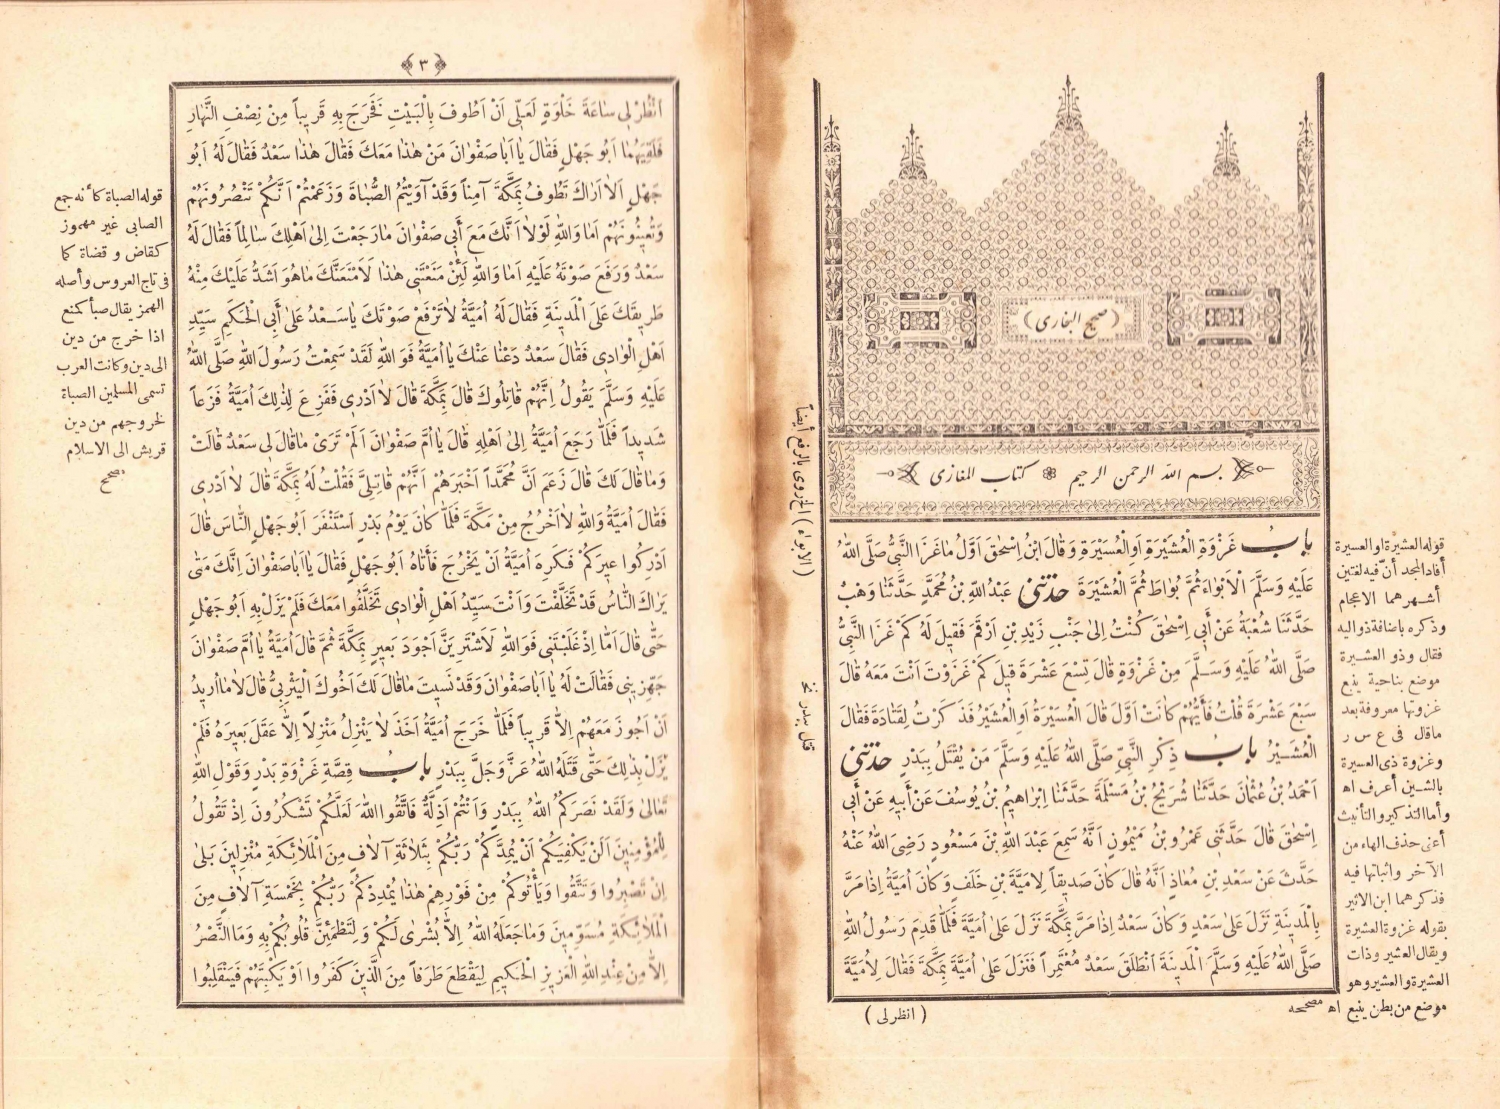 ﴿صحیح البخاری﴾
بسم الله الرحمن الرحیم ❀ كتاب المغازی
بابُ غَزْوَةِ الْعُشَيْرَةِ اَوِ الْعُسَيْرَةِ وَقَالَ ابْنُ اِسْحٰقَ اَوَّلُ مَا غَزَا النَّبِىُّ صَلَّى اللهُ
عَلَيْهِ وَسَلَّمَ الْاَبْوَاءَ ثُمَّ بُوَاطَ ثُمَّ الْعُشَيْرَةَ حدثنى عَبْدُ اللهِ بْنُ مُحَمَّدٍ حَدَّثَنَا وَهْبٌ
حَدَّثَنَا شُعْبَةُ عَنْ أَبِى اِسْحٰقَ كُنْتُ اِلىٰ جَنْبِ زَيْدِ بْنِ اَرْقَمَ فَقِيلَ لَهُ كَمْ غَزَا النَّبِىُّ
صَلَّى اللهُ عَلَيْهِ وَسَلَّمَ مِنْ غَزْوَةٍ قَالَ تِسْعَ عَشْرَةَ قِيلَ كَمْ غَزَوْتَ اَنْتَ مَعَهُ قَالَ
سَبْعَ عَشْرَةَ قُلْتُ فَأَيُّهُمْ كَانَتْ اَوَّلَ قَالَ الْعُسَيْرَةُ اَوِ الْعُشَيْرُ فَذَكَرْتُ لِقَتَادَةَ فَقَالَ
الْعُشَيْرُ بابُ ذِكْرِ النَّبِىِّ صَلَّى اللهُ عَلَيْهِ وَسَلَّمَ مَنْ يُقْتَلُ بِبَدْرٍ حدثنى
اَحْمَدُ بْنُ عُثْمَانَ حَدَّثَنَا شُرَيْحُ بْنُ مَسْلَمَةَ حَدَّثَنَا اِبْرَاهِيمُ بْنُ يُوسُفَ عَنْ أَبِيهِ عَنْ أَبِى
اِسْحٰقَ قَالَ حَدَّثَنِى عَمْرُو بْنُ مَيْمُونٍ اَنَّهُ سَمِعَ عَبْدَ اللهِ بْنَ مَسْعُودٍ رَضِىَ اللهُ عَنْهُ
حَدَّثَ عَنْ سَعْدِ بْنِ مُعَاذٍ اَنَّهُ قَالَ كَانَ صَدِيقاً لِاُمَيَّةَ بْنِ خَلَفٍ وَكَانَ اُمَيَّةُ اِذَا مَرَّ
بِالْمَدِينَةِ نَزَلَ عَلىٰ سَعْدٍ وَكَانَ سَعْدٌ اِذَا مَرَّ بِمَكَّةَ نَزَلَ عَلىٰ اُمَيَّةَ فَلَمَّا قَدِمَ رَسُولُ اللهِ
صَلَّى اللهُ عَلَيْهِ وَسَلَّمَ الْمَدِينَةَ انْطَلَقَ سَعْدٌ مُعْتَمِراً فَنَزَلَ عَلىٰ اُمَيَّةَ بِمَكَّةَ فَقَالَ لِاُمَيَّةَ
( انظرلى )
قوله العشيرة او العسيرة
أفاد المجد أنّ فيه لغتين
أشهرهما الاعجام
وذكره باضافة ذو اليه
فقال وذو العشيرة
موضع بناحية ينبع
غزوتها معروفة بعد
ماقال فى ع س ر
وغزوة ذى العسيرة
بالشين أعرف اه
وأما التذكير والتأنيث
أعنى حذف الهاء من
الآخر واثباتها فيه
فذكرهما ابن الاثير
بقوله غزوة العشيرة
ويقال العشير وذات
العشيرة والعشير وهو
موضع من بطن ينبع اه مصححه
( الابواء ) الخ روى بالرفع أيضاً
قتل ببدر نخ
﴿ ٣ ﴾
اَنْظُرْ لِى سَاعَةَ خَلْوَةٍ لَعَلِّى اَنْ اَطُوفَ بِالْبَيْتِ فَخَرَجَ بِهِ قَرِيباً مِنْ نِصْفِ النَّهَارِ
فَلَقِيَهُمَا اَبُو جَهْلٍ فَقَالَ يَا اَبَا صَفْوَانَ مَنْ هٰذَا مَعَكَ فَقَالَ هٰذَا سَعْدٌ فَقَالَ لَهُ اَبُو
جَهْلٍ اَلَا اَرَاكَ تَطُوفُ بِمَكَّةَ آمِناً وَقَدْ آوَيْتُمُ الصُّبَاةَ وَزَعَمْتُمْ اَنَّكُمْ تَنْصُرُونَهُمْ
وَتُعِينُونَهُمْ اَمَا وَاللهِ لَوْلَا اَنَّكَ مَعَ أَبِى صَفْوَانَ مَا رَجَعْتَ اِلىٰ اَهْلِكَ سَالِماً فَقَالَ لَهُ
سَعْدٌ وَرَفَعَ صَوْتَهُ عَلَيْهِ اَمَا وَاللهِ لَئِنْ مَنَعْتَنِى هٰذَا لَاَمْنَعَنَّكَ مَا هُوَ اَشَدُّ عَلَيْكَ مِنْهُ
طَرِيقَكَ عَلَى الْمَدِينَةِ فَقَالَ لَهُ اُمَيَّةُ لَا تَرْفَعْ صَوْتَكَ يَا سَعْدُ عَلىٰ أَبِى الْحَكَمِ سَيِّدِ
اَهْلِ الْوَادِى فَقَالَ سَعْدٌ دَعْنَا عَنْكَ يَا اُمَيَّةُ فَوَ اللهِ لَقَدْ سَمِعْتُ رَسُولَ اللهِ صَلَّى اللهُ
عَلَيْهِ وَسَلَّمَ يَقُولُ اِنَّهُمْ قَاتِلُوكَ قَالَ بِمَكَّةَ قَالَ لَا اَدْرِى فَفَزِعَ لِذٰلِكَ اُمَيَّةُ فَزَعاً
شَدِيداً فَلَمَّا رَجَعَ اُمَيَّةُ اِلىٰ اَهْلِهِ قَالَ يَا اُمَّ صَفْوَانَ اَلَمْ تَرَىْ مَا قَالَ لِى سَعْدٌ قَالَتْ
وَمَا قَالَ لَكَ قَالَ زَعَمَ اَنَّ مُحَمَّداً اَخْبَرَهُمْ اَنَّهُمْ قَاتِلِىَّ فَقُلْتُ لَهُ بِمَكَّةَ قَالَ لَا اَدْرِى
فَقَالَ اُمَيَّةُ وَاللهِ لَا اَخْرُجُ مِنْ مَكَّةَ فَلَمَّا كَانَ يَوْمُ بَدْرٍ اسْتَنْفَرَ اَبُو جَهْلٍ النَّاسَ قَالَ
اَدْرِكُوا عِيرَكُمْ فَكَرِهَ اُمَيَّةُ اَنْ يَخْرُجَ فَأَتَاهُ اَبُو جَهْلٍ فَقَالَ يَا اَبَا صَفْوَانَ اِنَّكَ مَتٰى
يَرَاكَ النَّاسُ قَدْ تَخَلَّفْتَ وَاَنْتَ سَيِّدُ اَهْلِ الْوَادِى تَخَلَّفُوا مَعَكَ فَلَمْ يَزَلْ بِهِ اَبُو جَهْلٍ
حَتّٰى قَالَ اَمَّا اِذْ غَلَبْتَنِى فَوَ اللهِ لَاَشْتَرِيَنَّ اَجْوَدَ بَعِيرٍ بِمَكَّةَ ثُمَّ قَالَ اُمَيَّةُ يَا اُمَّ صَفْوَانَ
جَهِّزِينِى فَقَالَتْ لَهُ يَا اَبَا صَفْوَانَ وَقَدْ نَسِيتَ مَا قَالَ لَكَ اَخُوكَ الْيَثْرِبِىُّ قَالَ لَا مَا اُرِيدُ
اَنْ اَجُوزَ مَعَهُمْ اِلَّا قَرِيباً فَلَمَّا خَرَجَ اُمَيَّةُ اَخَذَ لَا يَنْزِلُ مَنْزِلاً اِلَّا عَقَلَ بَعِيرَهُ فَلَمْ
يَزَلْ بِذٰلِكَ حَتّٰى قَتَلَهُ اللهُ عَزَّ وَجَلَّ بِبَدْرٍ بابُ قِصَّةِ غَزْوَةِ بَدْرٍ وَقَوْلِ اللهِ
تَعَالىٰ وَلَقَدْ نَصَرَكُمُ اللهُ بِبَدْرٍ وَاَنْتُمْ اَذِلَّةٌ فَاتَّقُوا اللهَ لَعَلَّكُمْ تَشْكُرُونَ اِذْ تَقُولُ
لِلْمُؤْمِنِينَ اَلَنْ يَكْفِيَكُمْ اَنْ يُمِدَّكُمْ رَبُّكُمْ بِثَلَاثَةِ آلَافٍ مِنَ الْمَلَائِكَةِ مُنْزَلِينَ بَلىٰ
اِنْ تَصْبِرُوا وَتَتَّقُوا وَيَأْتُوكُمْ مِنْ فَوْرِهِمْ هٰذَا يُمْدِدْكُمْ رَبُّكُمْ بِخَمْسَةِ آلَافٍ مِنَ
الْمَلَائِكَةِ مُسَوِّمِينَ وَمَا جَعَلَهُ اللهُ اِلَّا بُشْرىٰ لَكُمْ وَلِتَطْمَئِنَّ قُلُوبُكُمْ بِهِ وَمَا النَّصْرُ
اِلَّا مِنْ عِنْدِ اللهِ الْعَزِيزِ الْحَكِيمِ لِيَقْطَعَ طَرَفاً مِنَ الَّذِينَ كَفَرُوا اَوْ يَكْبِتَهُمْ فَيَنْقَلِبُوا
قوله الصباة كأنه جمع
الصابى غير مهموز
كقاض و قضاة كما
فى تاج العروس وأصله
الهمز يقال صبأ كمنع
اذا خرج من دين
الى دين وكانت العرب
تسمى المسلمين الصباة
لخروجهم من دين
قريش الى الاسلام
مصحح